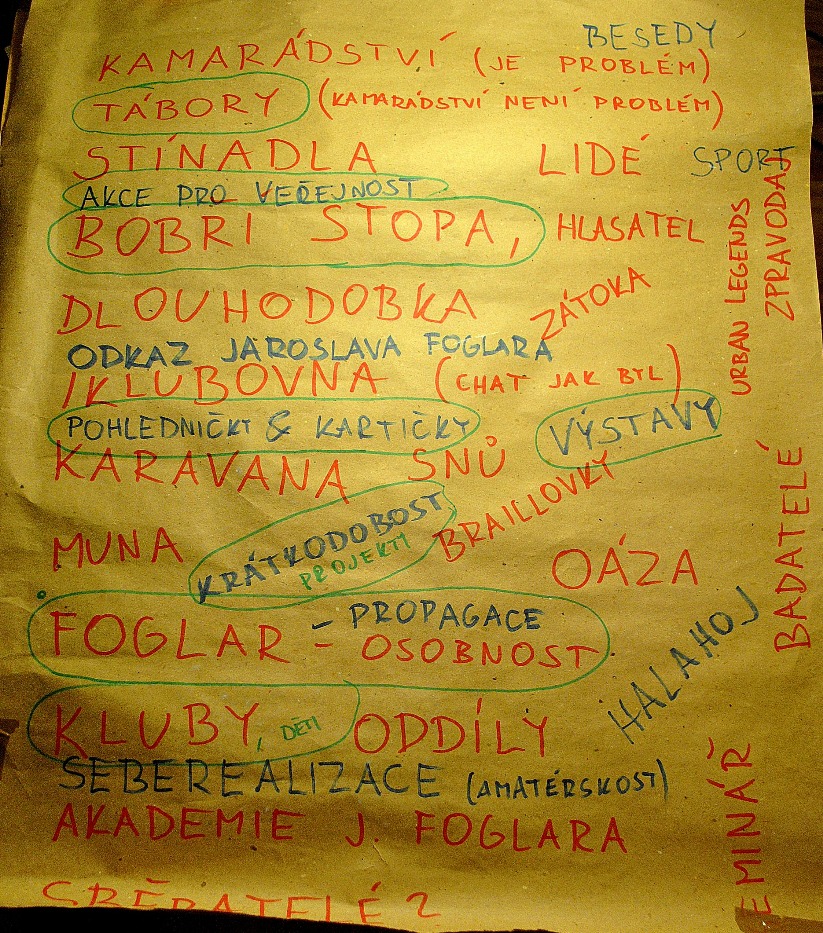 BESEDY
KAMARÁDSTVÍ (JE PROBLÉM)
TÁBORY (KAMARÁDSTVÍ NENÍ PROBLÉM)
STÍNADLA LIDÉ SPORT
AKCE PRO VEŘEJNOST
BOBRI STOPA, HLASATEL
URBAN LEGENDS
ZPRAVODAJ
DLOUHODOBKA ZÁTOKA
ODKAZ JAROSLAVA FOGLARA
IKLUBOVNA (CHAT JAK BYL)
POHLEDNIČKY & KARTIČKY VÝSTAVY
KARAVANA SNŮ
BADATELÉ
MUNA KRÁTKODOBOST BRAILLOVKY
PROJEKTY
OÁZA
FOGLAR - PROPAGACE
- OSOBNOST
HALAHOJ
KLUBY, DĚTI ODDÍLY
SEBEREALIZACE (AMATÉRSKOST)
AKADEMIE J. FOGLARA
EMINÁŘ
SBĚRATELÉ